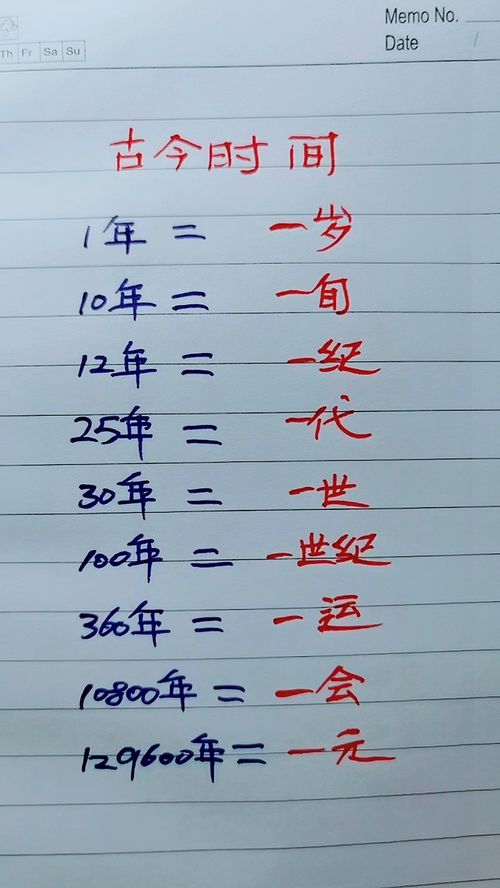 Memo No.
Date /
Th Fr Sa Su
古今时间
1年 = 一岁
10年 = 一旬
12年 = 一纪
25年 = 一代
30年 = 一世
100年 = 一世纪
360年 = 一运
10800年 = 一会
129600年 = 一元